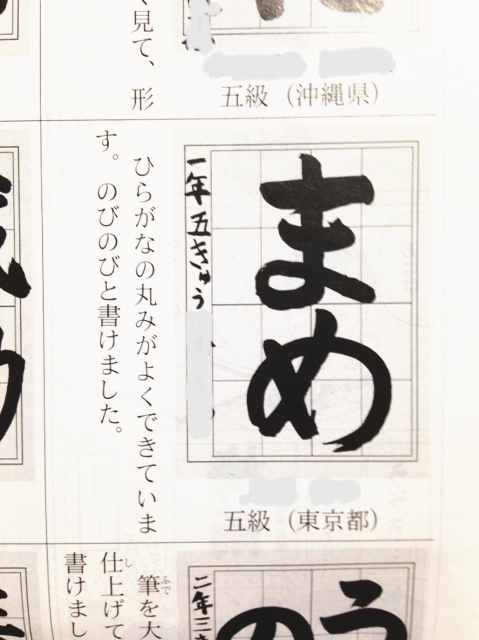 く見て、形
五級（沖縄県）
まめ
一年五きゅう
ひらがなの丸みがよくできていま
す。のびのびと書けました。
五級（東京都）
う
の
二年三
筆を大
ふで
仕上げて
し
書けまし